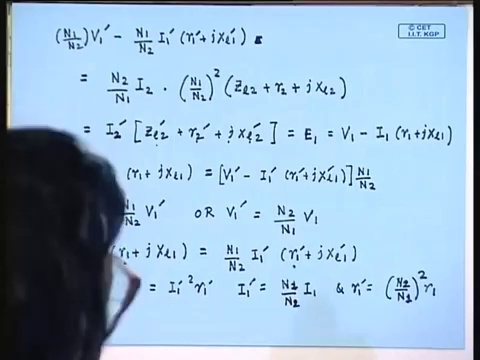 © CET
I.I.T. KGP
(N1/N2) V1' - N1/N2 I1' (r1' + jxl1')
= N2/N1 I2 . (N1/N2)² (Zl2 + r2 + jxl2)
= I2' [Zl2' + r2' + jxl2'] = E1 = V1 - I1 (r1 + jxl1)
(r1 + jxl1) = [V1' - I1' (r1' + jxl1')] N1/N2
N2 V1' OR V1' = N2/N1 V1
(r1 + jxl1) = N1/N2 I1' (r1' + jxl1')
= I1'² r1' I1' = N1/N2 I1 & r1' = (N2/N1)² r1